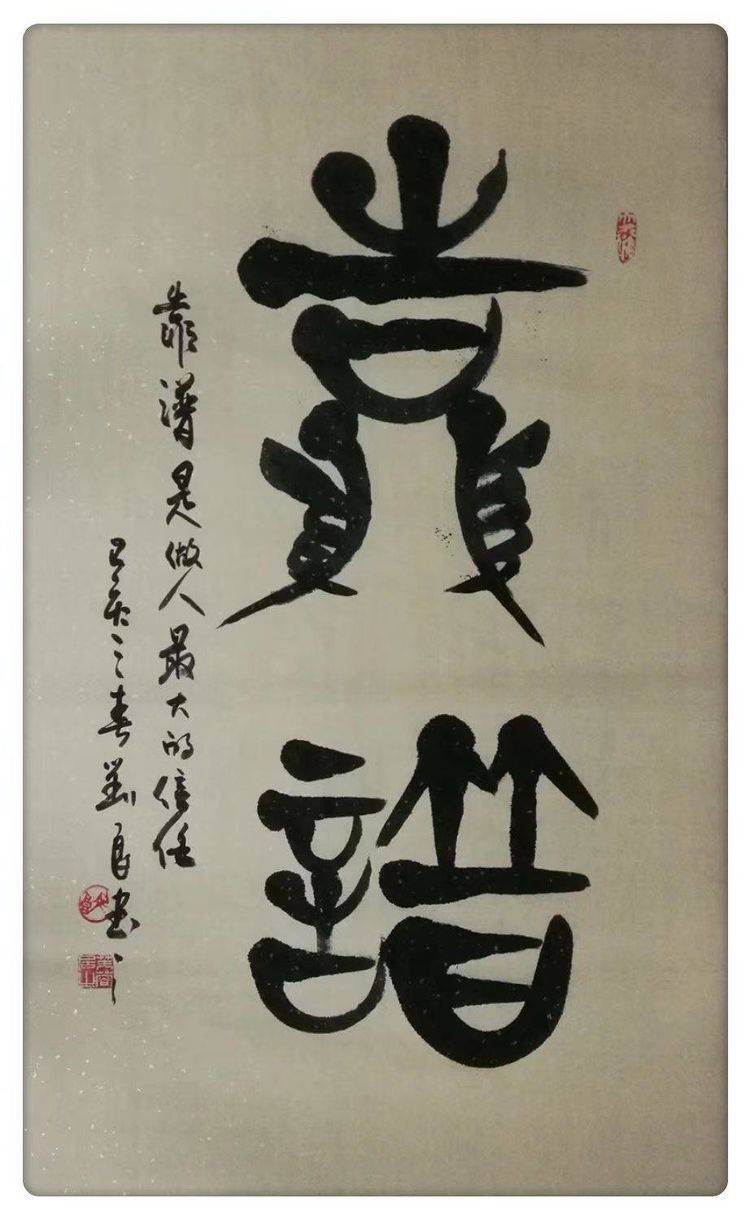 靠譜
靠譜是做人最大的信任
己亥之春劉良書